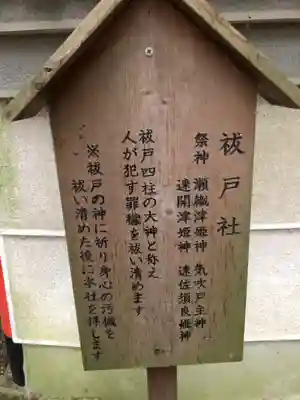 祓戸社
祭神 瀬織津姫神 気吹戸主神
速開津姫神 速佐須良姫神
祓戸四柱の大神と称え
人が犯す罪穢を祓い清めます
※祓戸の神に祈り身心の汚穢を
祓い清めた後に本社を拝します